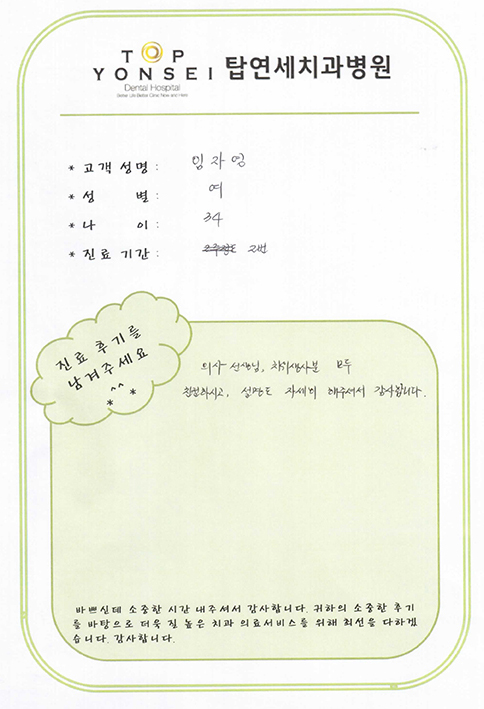 TOP
YONSEI 탑연세치과병원
Dental Hospital
Better Life Better Clinic Now and Here
* 고객 성명 : 임자영
* 성 별 : 여
* 나 이 : 34
* 진료 기간 : 2번
진료 후기를
남겨주세요
^^
* *
의사 선생님, 치위생사분 모두
친절하시고, 설명도 자세히 해주셔서 감사합니다.
바쁘신데 소중한 시간 내주셔서 감사합니다. 귀하의 소중한 후기
를 바탕으로 더욱 질 높은 치과 의료서비스를 위해 최선을 다하겠
습니다. 감사합니다.